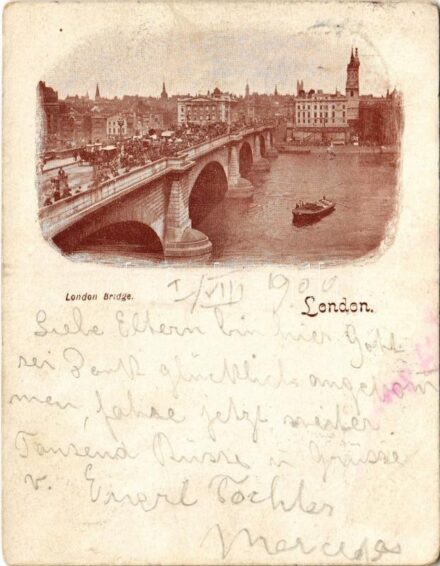 London Bridge.
I/VIII 1900
London.
Liebe Eltern bin hier Gott
sei Dank glücklich angekom
men, fahre jetzt weiter.
Tausend Küsse u Grüsse
v. Eurer Tochter
Mercedes